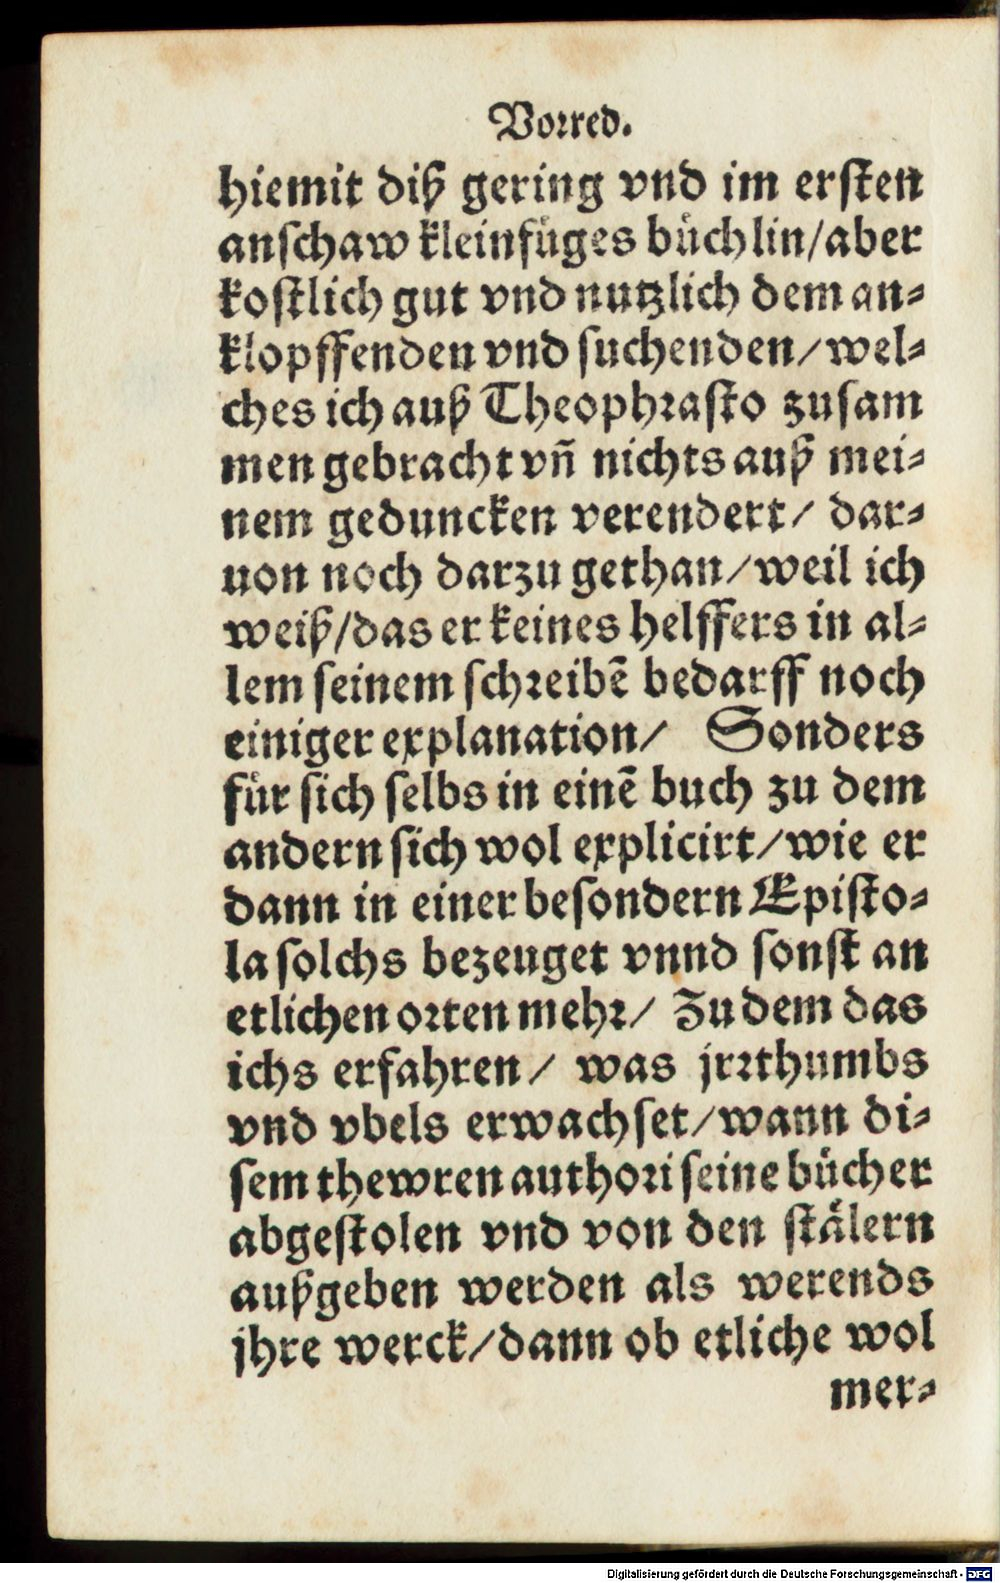 Vorred.
hiemit diß gering vnd im ersten
anschaw kleinfüges büchlin/aber
kostlich gut vnd nutzlich dem an⸗
klopffenden vnd suchenden/wel⸗
ches ich auß Theophrasto zusam
men gebracht vñ nichts auß mei⸗
nem geduncken verendert/ dar⸗
uon noch darzu gethan/weil ich
weiß/das er keines helffers in al⸗
lem seinem schreibẽ bedarff noch
einiger explanation/ Sonders
für sich selbs in einẽ buch zu dem
andern sich wol explicirt/wie er
dann in einer besondern Episto⸗
la solchs bezeuget vnnd sonst an
etlichen orten mehr/ Zu dem das
ichs erfahren/ was jrrthumbs
vnd vbels erwachset/wann di⸗
sem thewren authori seine bücher
abgestolen vnd von den stälern
außgeben werden als werends
jhre werck/dann ob etliche wol
mer⸗
Digitalisierung gefördert durch die Deutsche Forschungsgemeinschaft - DFG